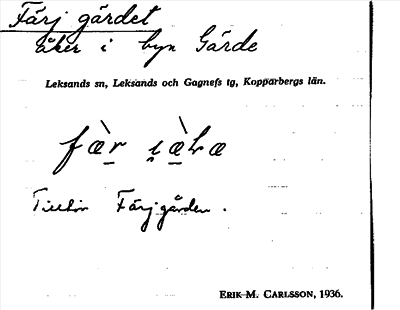 Färj gärdet
åker i byn Gärde
Leksands sn, Leksands och Gagnefs tg, Kopparbergs län.
Tillhör Färjgården.
ERIK M. CARLSSON, 1936.